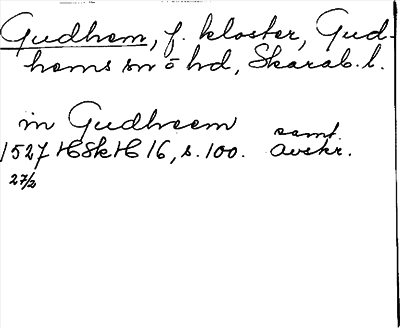 Gudhem, f. kloster, Gud-
hems sn o hd, Skarab. l.
in Gudheem
samt.
1527 HSkH 16, s. 100. avskr.
27/2